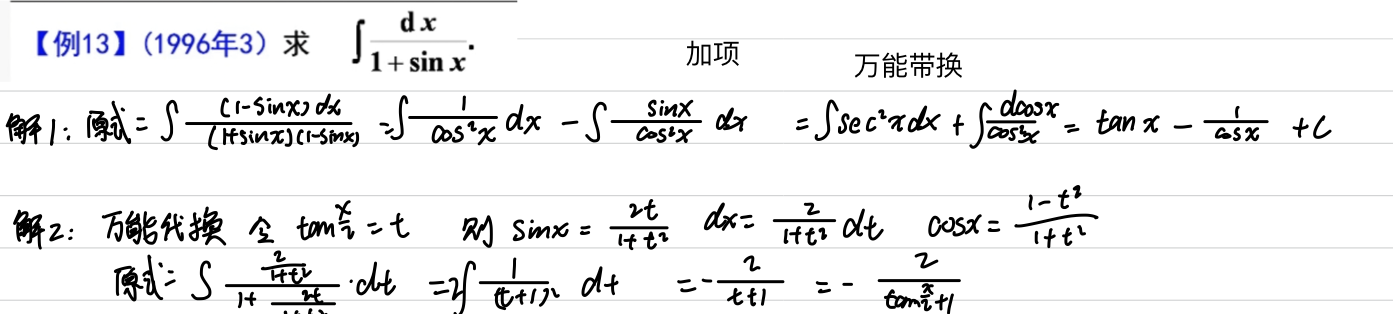 【例13】(1996年3) 求 ∫ dx/(1+sin x).
加项 万能带换
解1: 原式 = ∫ (1-sinx)dx/((1+sinx)(1-sinx)) = ∫ 1/cos²x dx - ∫ sinx/cos²x dx = ∫sec²xdx + ∫ dcosx/cos²x = tan x - 1/cosx + C
解2: 万能代换 令 tan x/2 = t 则 sinx = 2t/(1+t²) dx = 2/(1+t²) dt cosx = (1-t²)/(1+t²)
原式 = ∫ (2/(1+t²))/(1+ 2t/(1+t²)) ·dt = 2∫ 1/(t+1)² dt = - 2/(t+1) = - 2/(tan x/2 +1)